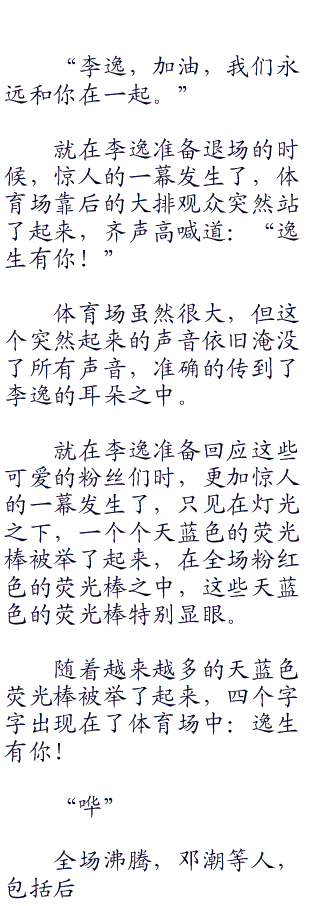 “李逸，加油，我们永
远和你在一起。”
就在李逸准备退场的时
候，惊人的一幕发生了，体
育场靠后的大排观众突然站
了起来，齐声高喊道：“逸
生有你！”
体育场虽然很大，但这
个突然起来的声音依旧淹没
了所有声音，准确的传到了
李逸的耳朵之中。
就在李逸准备回应这些
可爱的粉丝们时，更加惊人
的一幕发生了，只见在灯光
之下，一个个天蓝色的荧光
棒被举了起来，在全场粉红
色的荧光棒之中，这些天蓝
色的荧光棒特别显眼。
随着越来越多的天蓝色
荧光棒被举了起来，四个字
字出现在了体育场中：逸生
有你！
“哗”
全场沸腾，邓潮等人，
包括后